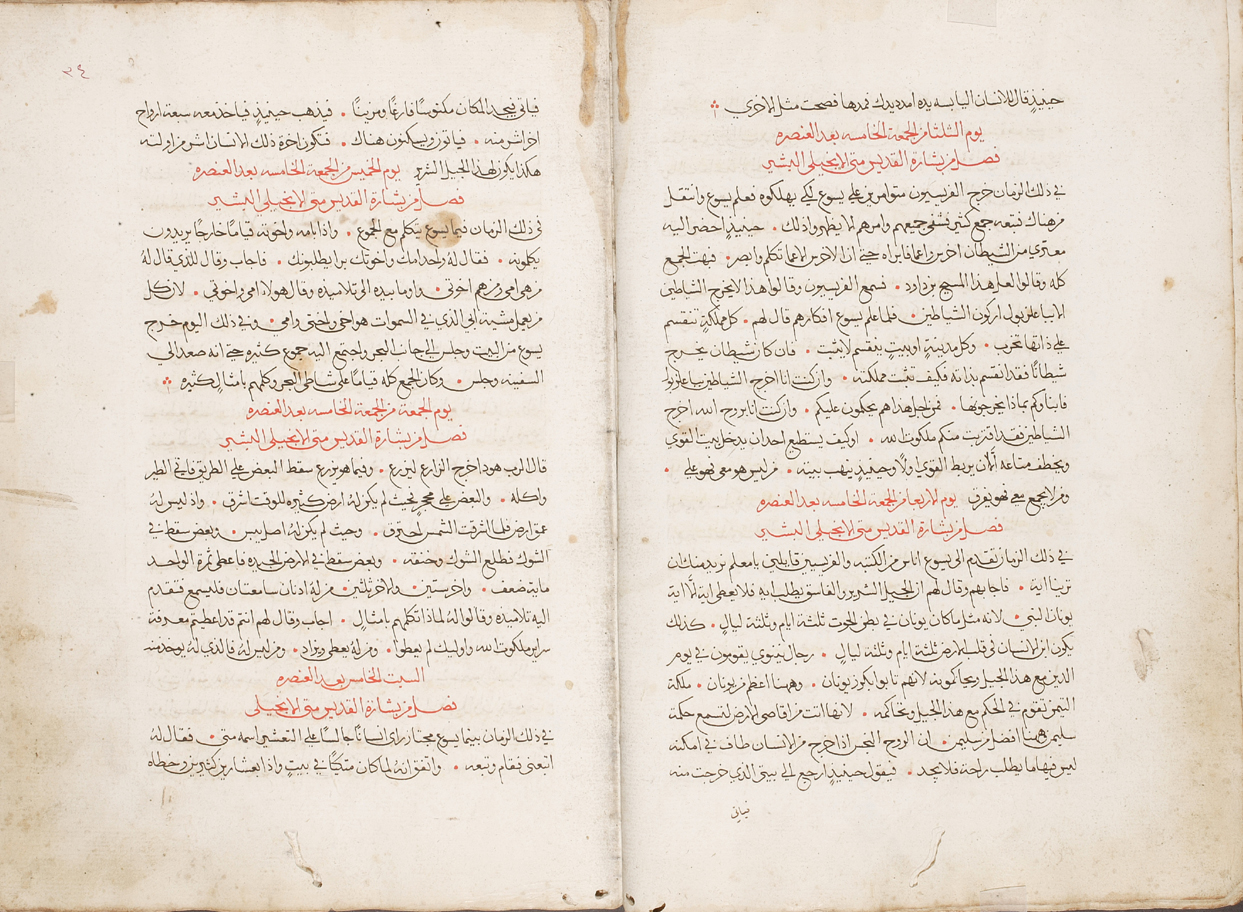 حينيذٍ قال للانسان اليابسه يده امدد يدك فمدها فصحت مثل الاخري
يوم الثلثا من الجمعة الخامسه بعد العنصره
فصل من بشارة القديس متى الانجيلي البشير
في ذلك الزمان خرج الفريسيون متوامرين على يسوع لكي يهلكوه فعلم يسوع وانتقل
من هناك فتبعه جمع كثير فشفى جميعهم وامرهم الا يظهروا ذلك • حينيذٍ احضر اليه
معتري من الشيطان اخرس واعما فابراه حتى ان الاخرس الاعما تكلم وابصر • فبهت الجمع
كله وقالوا لعل هذا المسيح بن داود • فسمع الفريسيون وقالوا هذا لا يخرج الشياطين
الا ببعلزبول اركون الشياطين • فلما علم يسوع افكارهم قال لهم • كل مملكةٍ تنقسم
على ذاتها تخرب • وكل مدينةٍ او بيتٍ ينقسم لا يثبت • فان كان شيطان يخرج
شيطانًا فقد انقسم بذاته فكيف تثبت مملكته • وان كنت انا اخرج الشياطين ببعلزبول
فابناوكم بماذا يخرجونها • فمن اجل هذا هم يحكمون عليكم • وان كنت انا بروح الله اخرج
الشياطين فقد اقتربت منكم ملكوت الله • او كيف يستطيع احد ان يدخل بيت القوي
ويخطف متاعه الا ان يربط القوي اولًا وحينيذٍ ينهب بيته • من ليس هو معي فهو علي •
ومن لا يجمع معي فهو يفرق يوم الاربعا من الجمعة الخامسه بعد العنصره
فصل من بشارة القديس متى الانجيلي البشير
في ذلك الزمان تقدم الى يسوع اناس من الكتبه والفريسيين قايلين يا معلم نريد منك ان
ترينا اية • فاجابهم وقال لهم ان الجيل الشرير والفاسق يطلب ايه فلا يعطى اية الا اية
يونان النبي • لانه مثل ما كان يونان في بطن الحوت ثلثة ايام وثلثة ليالٍ • كذلك
يكون ابن الانسان في قلب الارض ثلثة ايام وثلثة ليالٍ • رجال نينوي يقومون في يوم
الدين مع هذا الجيل ويحاكمونه لانهم تابوا بكروز يونان • وههنا اعظم من يونان • ملكة
التيمن تقوم في الحكم مع هذا الجيل وتحاكمه • لانها اتت من اقاصي الارض لتسمع حكمة
سليمن وههنا افضل من سليمن • ان الروح النجس اذا خرج من الانسان طاف في امكنه
ليس فيها ما يطلب راحة فلا يجد • فيقول حينيذٍ ارجع الى بيتي الذي خرجت منه
فياتي
٣٤
فياتي فيجد المكان مكنوسًا فارغًا ومزينًا • فيذهب حينيذٍ فياخذ معه سبعة ارواح
اخر اشر منه • فياتون ويسكنون هناك • فتكون اخرة ذلك الانسان اشر من اولته
هكذا يكون لهذا الجيل الشرير يوم الخميس من الجمعة الخامسه بعد العنصره
فصل من بشارة القديس متى الانجيلي البشير
في ذلك الزمان فيما يسوع يتكلم مع الجموع • واذا بامه واخوته قيامًا خارجًا يريدون
يكلمونه • فقال له واحد امك واخوتك برا يطلبونك • فاجاب وقال للذي قال لهُ
من هي امي ومن هم اخوتي • واوما بيده الى تلاميذه وقال هولاء امي واخوتي • لان كل
من يعمل مشية ابي الذي في السموات هو اخي واختي وامي • وفي ذلك اليوم خرج
يسوع من البيت وجلس الى جانب البحر واجتمع اليه جموع كثيره حتى انه صعد الى
السفينه وجلس • وكان الجمع كله قيامًا على شاطى البحر وكلمهم بامثالٍ كثيره
يوم الجمعة من الجمعة الخامسه بعد العنصره
فصل من بشارة القديس متى الانجيلي البشير
قال الرب هوذا خرج الزارع ليزرع • وفيما هو يزرع سقط البعض على الطريق فاتى الطير
واكله • والبعض على صخرٍ بحيث لم يكن لهُ ارض كثيره للوقت اشرق • واذ ليس لهُ
عمق ارض فلما اشرقت الشمس احترق • وحيث لم يكن لهُ اصل يبس • وبعض سقط في
الشوك فطلع الشوك وخنقه • وبعض سقط في الارض الجيده فاعطى ثمرة الواحد
ماية ضعف • واخر ستين • والاخر ثلثين • من له اذنان سامعتان فليسمع فتقدم
اليه تلاميذه وقالوا له لماذا تكلمهم بامثالٍ • اجاب وقال لهم انتم قد اعطيتم معرفة
سراير ملكوت الله واوليك لم يعطوا • ومن لهُ يعطى ويزاد • ومن ليس لهُ فالذي لهُ يوخذ منه
السبت الخامس بعد العنصره
فصل من بشارة القديس متى الانجيلي
في ذلك الزمان بينما يسوع مجتاز راى انسانًا جالسًا على التعشير اسمه متى • فقال له
اتبعني فقام وتبعه • واتفق انهُ لما كان متكيًا في بيتٍ واذا بعشارين كثيرين وخطاه